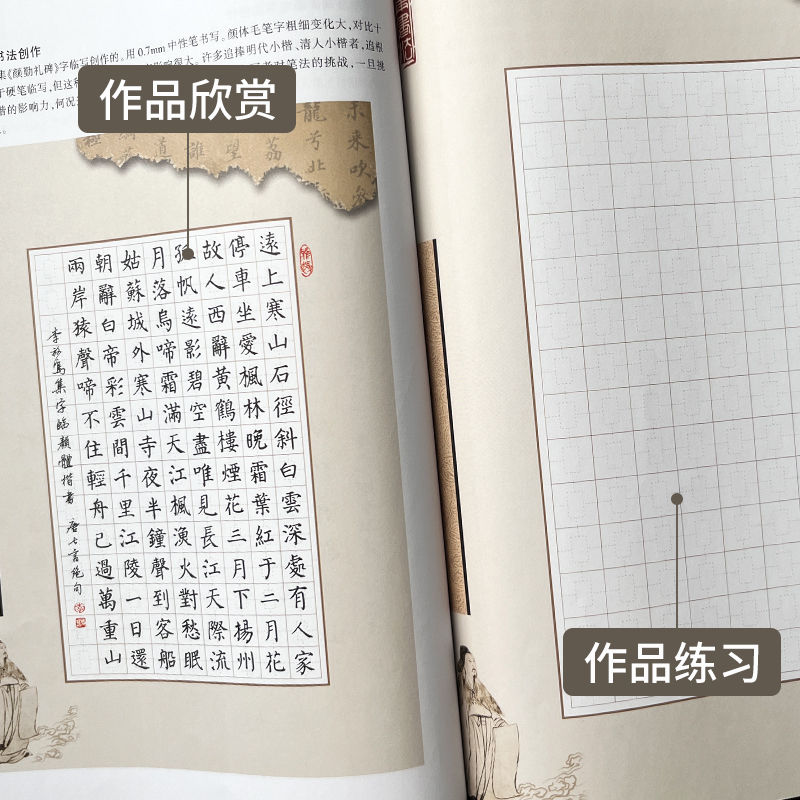 书法创作
集《颜勤礼碑》字临写创作的。用0.7mm中性笔书写。颜体毛笔字粗细变化大，对比十
于硬笔临写，但这 影响很大。许多追捧明代小楷、清人小楷者，追根
的影响力，何况 者对笔法的挑战，一旦挑
作品欣赏
遠上寒山石徑斜白雲深處有人家
停車坐愛楓林晚霜葉紅于二月花
故人西辭黃鶴樓煙花三月下楊州
孤帆遠影碧空盡唯見長江天際流
月落烏啼霜滿天江楓漁火對愁眠
姑蘇城外寒山寺夜半鐘聲到客船
朝辭白帝彩雲間千里江陵一日還
兩岸猿聲啼不住輕舟已過萬重山
李放鳴集字臨顏體楷書 唐七言絕句
作品练习